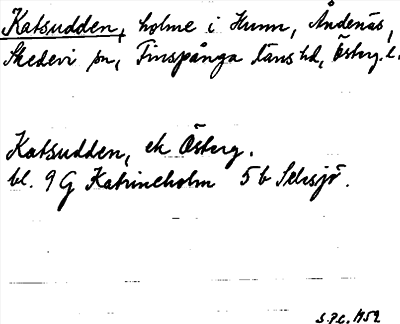 Katsudden, holme i Hunn, Åndenäs,
Skedevi sn, Finspånga läns hd, Österg. l.
Katsudden, ek Österg.
bl. 9 G Katrineholm 5 b Selesjö.
S.P.C. 1952